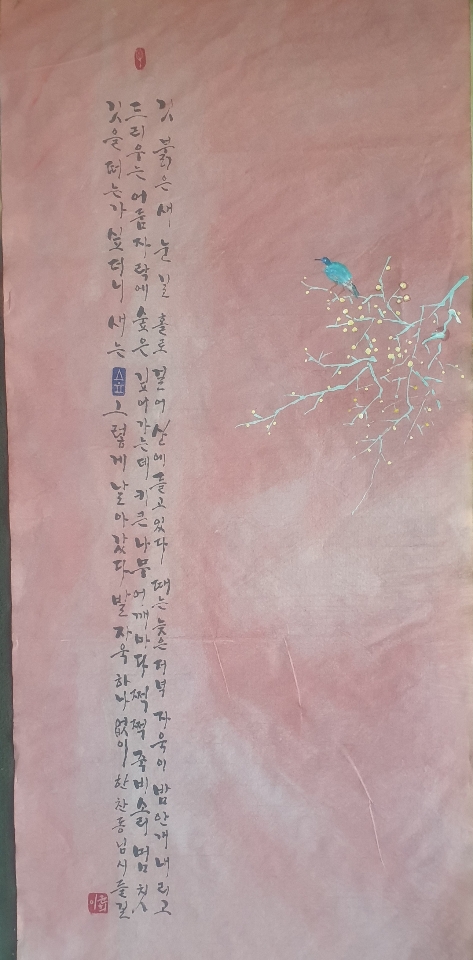 깃 붉은 새 눈 길 홀로 걸어 산에 들고 있다 때는 늦은 저녁 자욱이 밤안개 내리고
드리우는 어둠자락에 숲은 깊어가는데 키큰나무 어깨마다 쩍쩍 죽비소리 멈칫
깃을 떠는가 싶더니 새는 그렇게 날아갔다 발자욱 하나 없이 한찬동님 시 들길